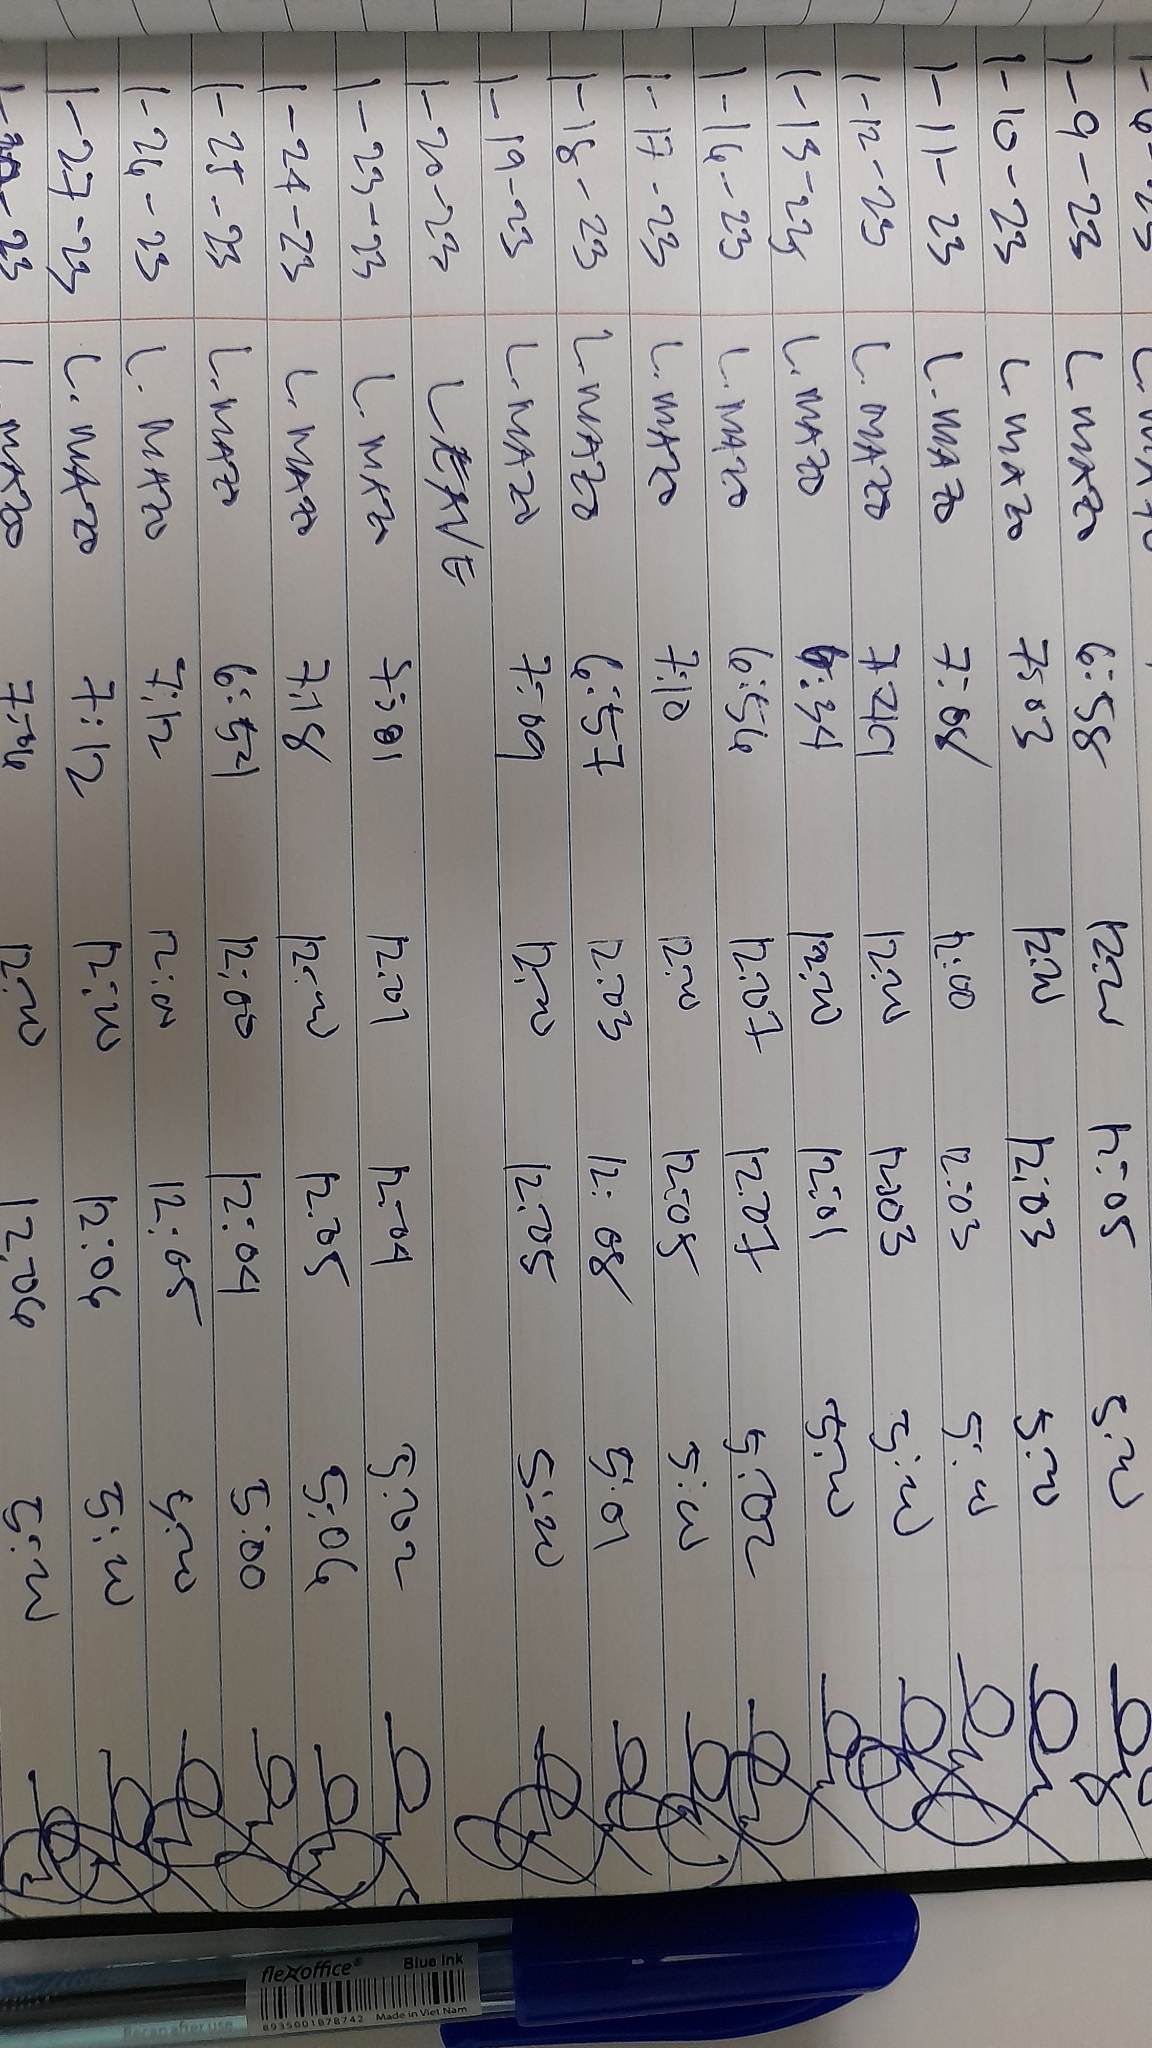 L. MAZO
1-9-23 L. MAZO 6:58 12:00 12:05 5:00
1-10-23 L. MAZO 7:03 12:00 12:03 5:00
1-11-23 L. MAZO 7:08 12:00 12:03 5:00
1-12-23 L. MAZO 12:00 12:03 5:00
1-13-23 L. MAZO 6:34 12:00 12:01 5:00
1-16-23 L. MAZO 6:56 12:07 12:07 5:02
1-17-23 L. MAZO 7:10 12:00 12:05 5:00
1-18-23 L. MAZO 6:57 12:03 12:08 5:01
1-19-23 L. MAZO 7:09 12:00 12:05 5:00
1-20-23 LEAVE
1-23-23 L. MAZO 12:01 12:04 5:02
1-24-23 L. MAZO 7:18 12:00 12:05 5:06
1-25-23 L. MAZO 12:00 12:04 5:00
1-26-23 L. MAZO 7:12 12:00 12:05 5:00
1-27-23 L. MAZO 7:12 12:00 12:06 5:00
L. MAZO 12:00 12:06 5:00
flexoffice® Blue Ink
8935001878742 Made in Viet Nam
Recap after use